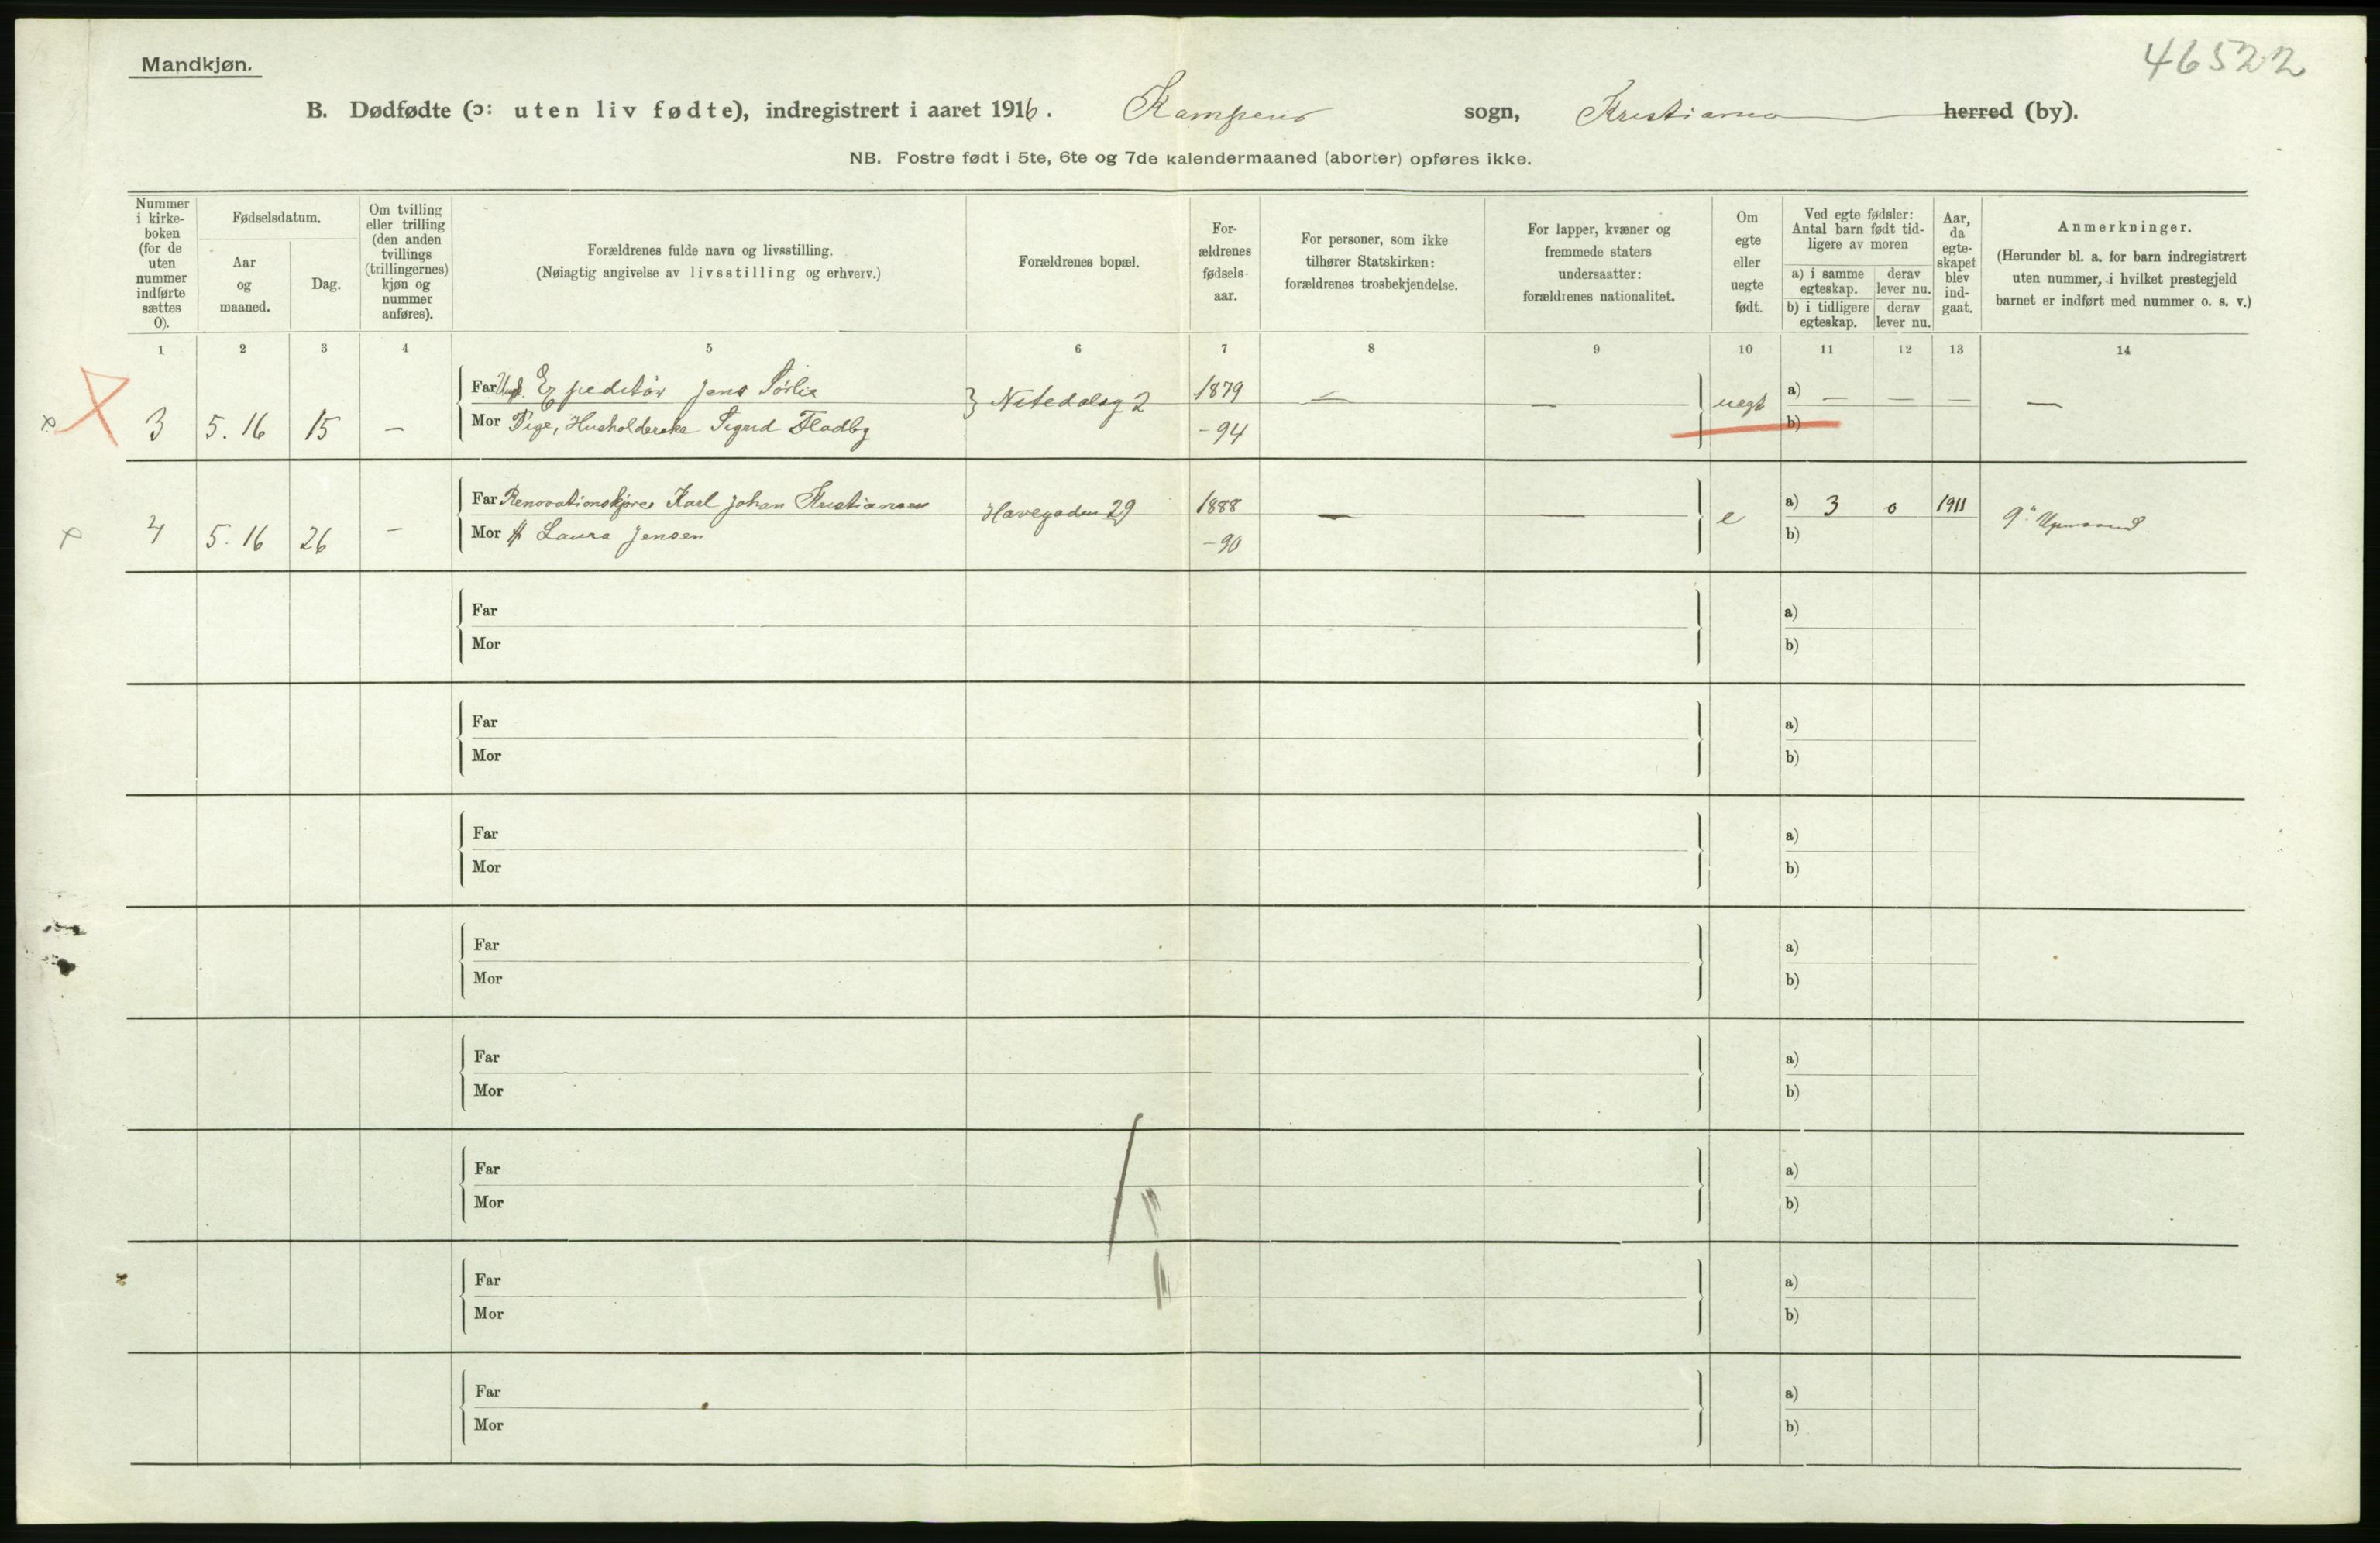 Mandkjøn.
46522
B. Dødfødte (ɔ: uten liv fødte), indregistrert i aaret 1916. Kampens sogn, Kristiania herred (by).
NB. Fostre født i 5te, 6te og 7de kalendermaaned (aborter) opføres ikke.
Nummer i kirke-boken (for de uten nummer indførte sættes 0).
Fødselsdatum.
Aar og maaned.
Dag.
Om tvilling eller trilling (den anden tvillings (trillingernes) kjøn og nummer anføres).
Forældrenes fulde navn og livsstilling.
(Nøiagtig angivelse av livsstilling og erhverv.)
Forældrenes bopæl.
For-ældrenes fødsels-aar.
For personer, som ikke tilhører Statskirken: forældrenes trosbekjendelse.
For lapper, kvæner og fremmede staters undersaatter: forældrenes nationalitet.
Om egte eller uegte født.
Ved egte fødsler: Antal barn født tid-ligere av moren
a) i samme egteskap.
derav lever nu.
b) i tidligere egteskap.
derav lever nu.
Aar, da egte-skapet blev ind-gaat.
Anmerkninger.
(Herunder bl. a. for barn indregistrert uten nummer, i hvilket prestegjeld barnet er indført med nummer o. s. v.)
1 2 3 4 5 6 7 8 9 10 11 12 13 14
Far Ungk. Expeditør Jens Sørlie } Nitedalsg 2 1879 — — uegt a) — — — —
3 5.16 15 — Mor Pige, Husholderske Sigrid Fladby - 94 b)
Far Renovationskjører Karl Johan Kristiansen Havegaden 29 1888 — — e a) 3 0 1911
4 5.16 26 — Mor Laura Jensen - 90 b)
Far a)
Mor b)
Far a)
Mor b)
Far a)
Mor b)
Far a)
Mor b)
Far a)
Mor b)
Far a)
Mor b)
Far a)
Mor b)
Far a)
Mor b)